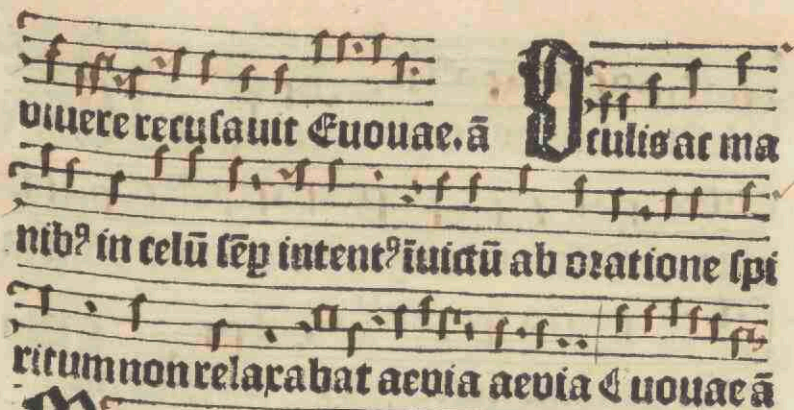 viuere recusauit Euouae. ā Oculis ac ma
nibꝰ in celū sēꝑ intentꝰ īuictū ab oratione spi
ritum non relaxabat aeuia aeuia Euouae ā